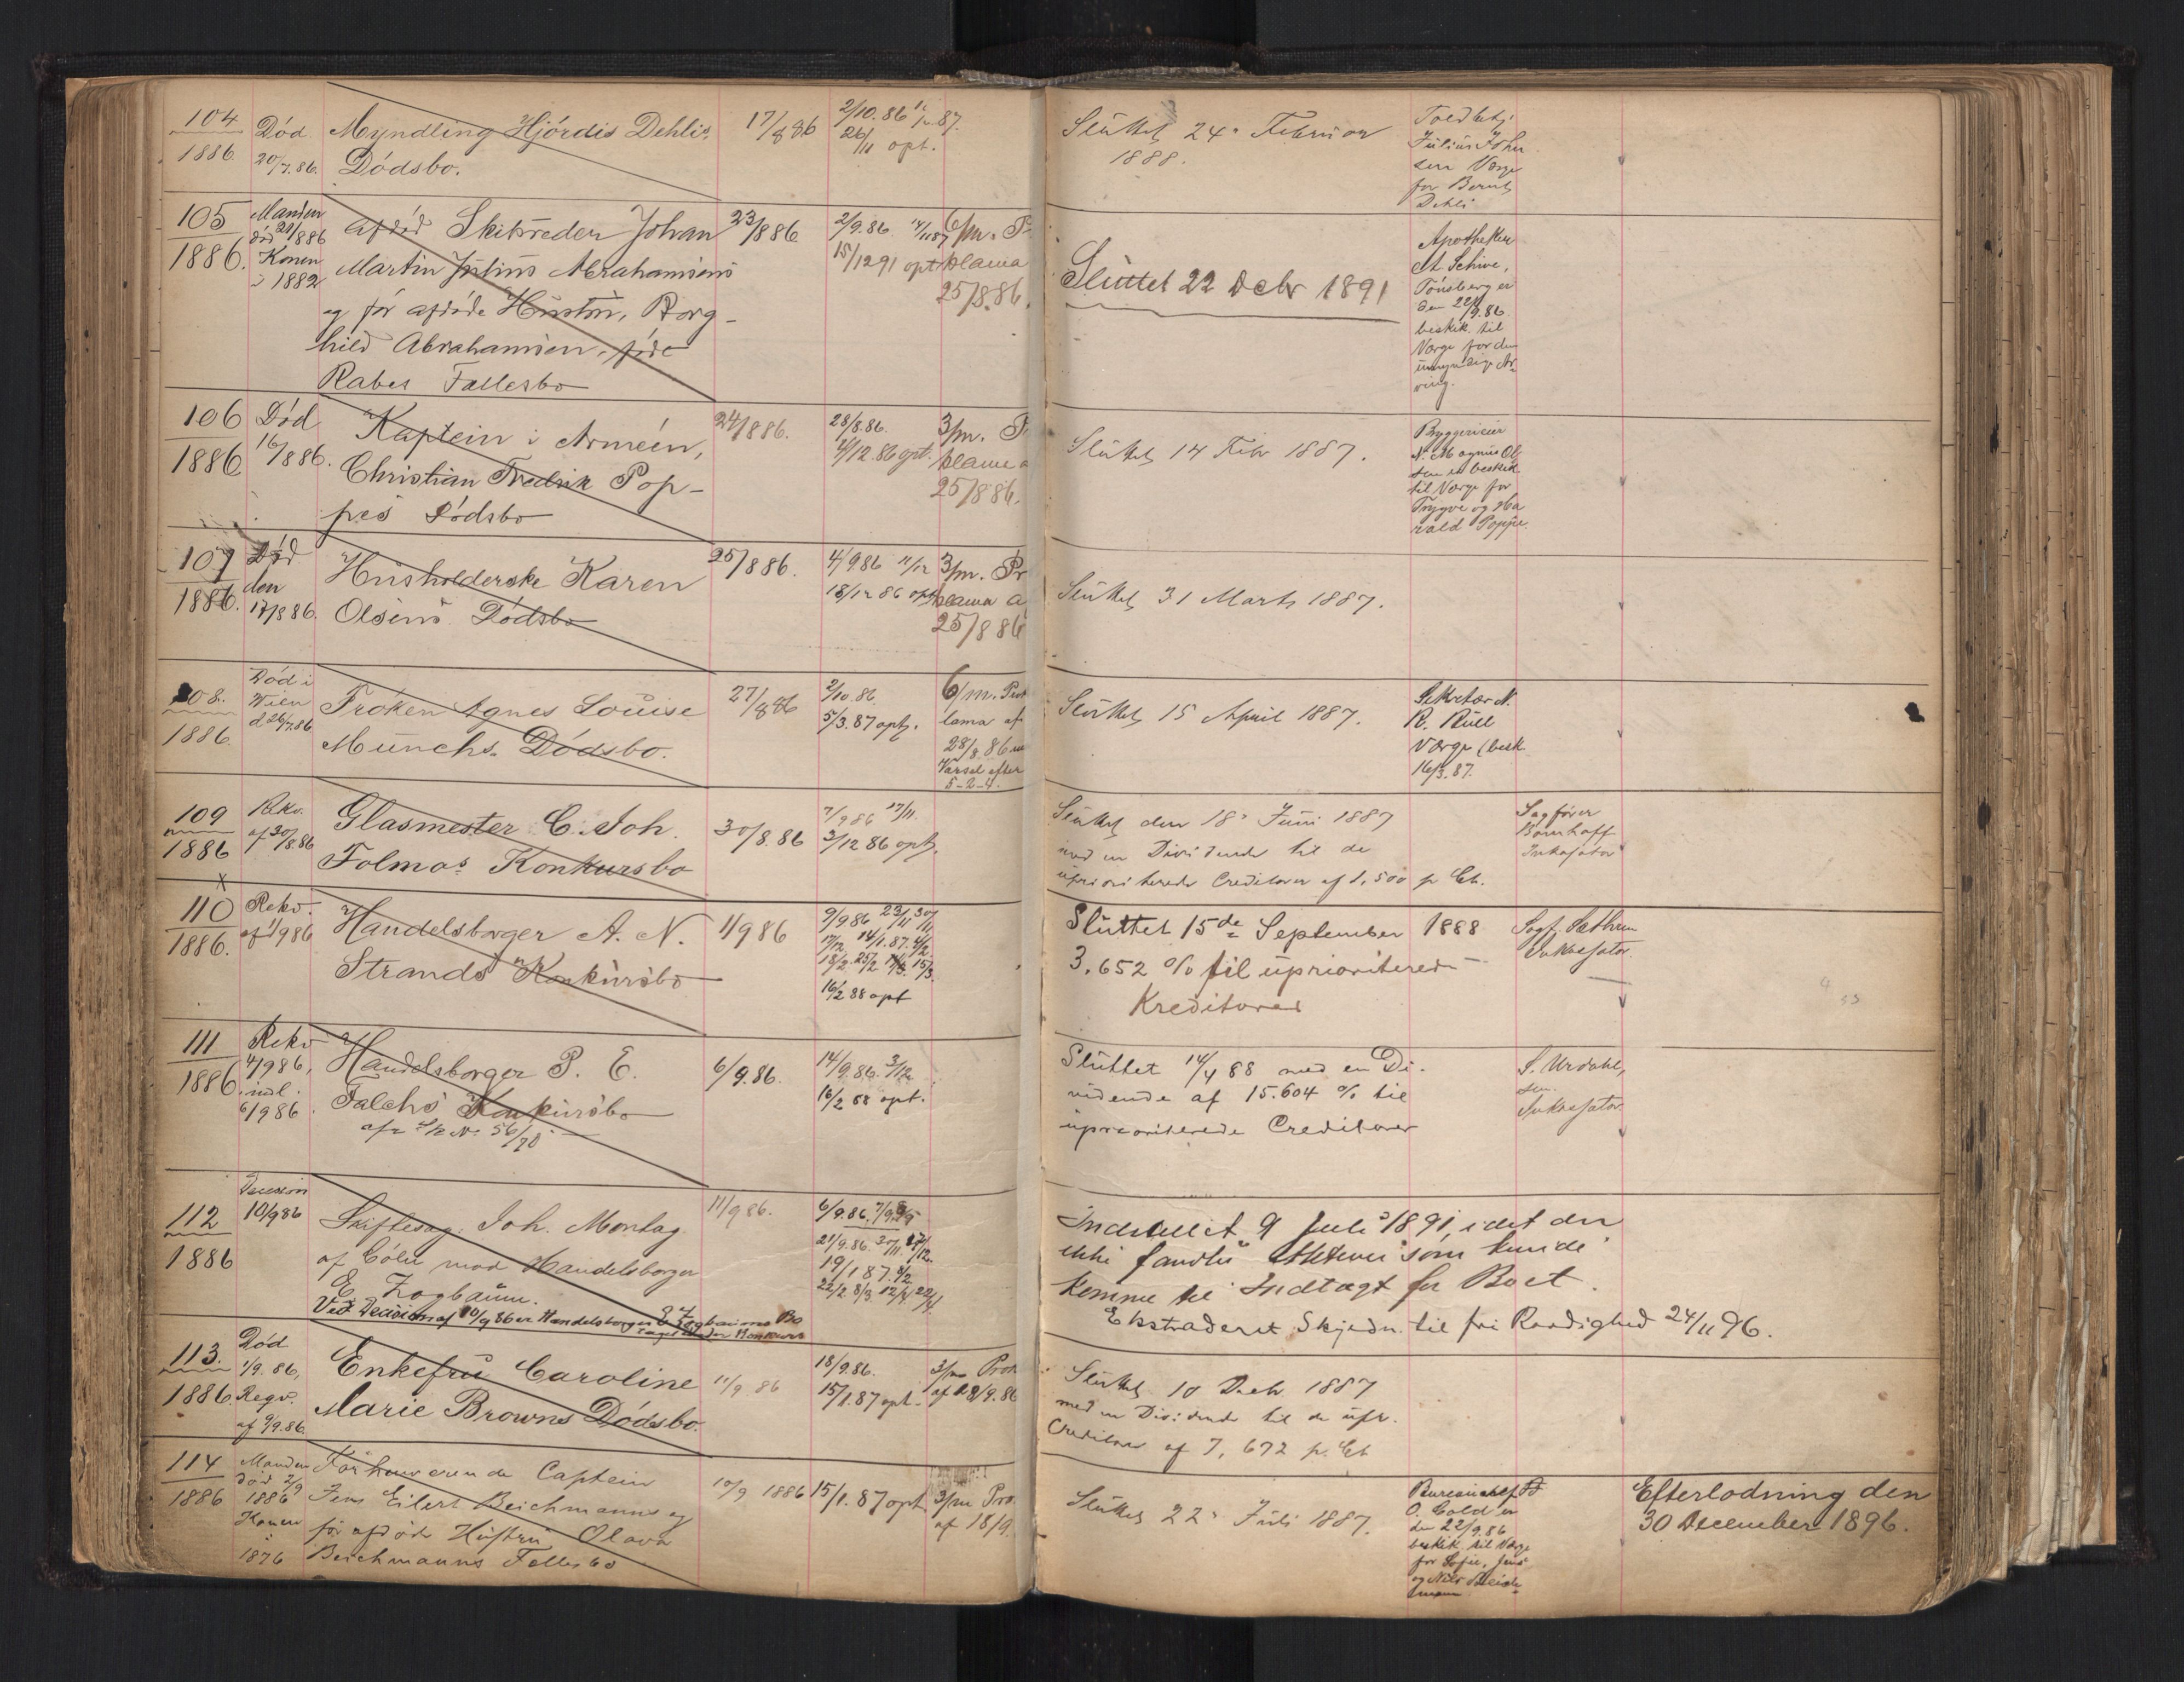 104
1886.
Död
20/7.86.
Myndling Hjördis Dehlis
Dödsbo.
17/8 86
2/10.86
87.
26/11 opt.
Sluttet 24. Februar
1888.
Toldbetj.
Julius
sen Værge
for Bernt
Dehli
105
1886.
Manden
död 21/8 86
Konen
i 1882
afdöd Skibsreder Johan
Martin Julius Abrahamsens
og för afdöde Hustru, Borg-
hild Abrahamsen, föde
Rabes Fællesbo
23/8 86
2/9.86.
15/12 91 opt
6/m. Pr
klama
25/8.86.
Sluttet 22 Decbr 1891
Apotheker
A Schive,
Tönsberg er
den 22/9.86.
beskik. til
Værge for den
umyndige Ar-
ving.
106
1886
Död
16/8 86.
Kaptein i Arméen,
Christian Fredrik Pop-
pes Dödsbo
24/8 86.
28/8.86.
4/12.86 opt.
3/m. P
klama a
25/8 86.
Sluttet 14 Febr 1887.
Bryggerieier
N. Magnus Ol
sen er beskik
til Værge for
Trygve og Ha
rald Poppe.
107
1886.
Död
den
17/8 86.
Husholderske Karen
Olsens Dödsbo
25/8 86.
4/9 86 11/12
18/12 86 opt
3/m. Pr
klama a
25/8 86
Sluttet 31 Marts 1887.
108.
1886.
Död i
Wien
d 26/7.86
Fröken Agnes Louise
Munchs Dödsbo.
27/8 86
2/10.86.
5/3.87 opt.
6/m. Prok
lama af
28/8 86 m
Varsel efter
5-2-4.
Sluttet 15 April 1887.
Sekretær N.
R. Rull
Værge (besk
16/3.87.
109
1886
Rekv.
af 30/8.86
Glasmester C. Joh.
Folmos Konkursbo
30/8.86
7/9 86 17/11.
3/12 86 opt.
Sluttet den 18. Juni 1887
med en Dividende til de
uprioriterede Creditorer af 1,500 p Ct.
Sagförer
Bomhoff
Inkasator
110
1886.
Rekv.
af 1/9 86
Handelsborger A. N.
Strands Konkursbo
1/9 86
9/9 86 23/11 30/11
17/12 14/1.87. 4/2
18/2 25/2 11/3. 15/3.
16/2 88 opt
Sluttet 15de September 1888
3.652 % til uprioriterede
Kreditorer
Sagf. Sathren
Inkasator.
111
1886.
Rekv
4/9 86,
indl.
6/9 86.
Handelsborger P. E.
Falchs Konkursbo
56/78
6/9.86.
14/9.86. 3/12
16/2 88 opt.
Sluttet 14/4 88 med en Di-
vidende af 15.604 % til
uprioriterede Creditorer
S. Urdahl,
sen.
Inkasator.
112
1886
Decision
10/9 86
Skiftesag. Joh. Montag
af Cöln mod Handelsborger
E. Zogbaum.
Ved Decision af 10/9 86 er Handelsborger E Zogbaums Bo
taget under Konkurs
11/9 86.
6/9.86. 7/9
21/9.86.
19/1 87. 4/2
22/2 8/3 12/4 22/4
Indstillet 9 Juli 1891, idet der
ikke fandtes Aktiver som kunde
komme til Indtægt for Boet.
Ekstraderet Skjødn. til fri Raadighed 24/11 96.
113.
1886
Död
1/9.86,
Reqv.
af 9/9.86.
Enkefru Caroline
Marie Browns Dödsbo.
11/9 86
18/9.86.
15/1.87 opt.
3/m Prok
af 18/9.86
Sluttet 10 Decbr 1887
med en Dividende til de upr.
Creditorer af 7,672 p. Ct
114
1886
Manden
död 2/9
1886
Konen
i
1876
Forhenværende Captein
Jens Eilert Beichmanns og
för afdöde Hustru Olava
Beichmanns Fællesbo
10/9 1886
15/1.87 opt
3/m Pro.
af 18/9.
Sluttet 22. Juli 1887.
Bureauchef
O. Cold er
den 22/9.86
beskik. til Værge
for Sofie, Jens
og Nils Beich-
mann
Efterlodning den
30 December 1896.